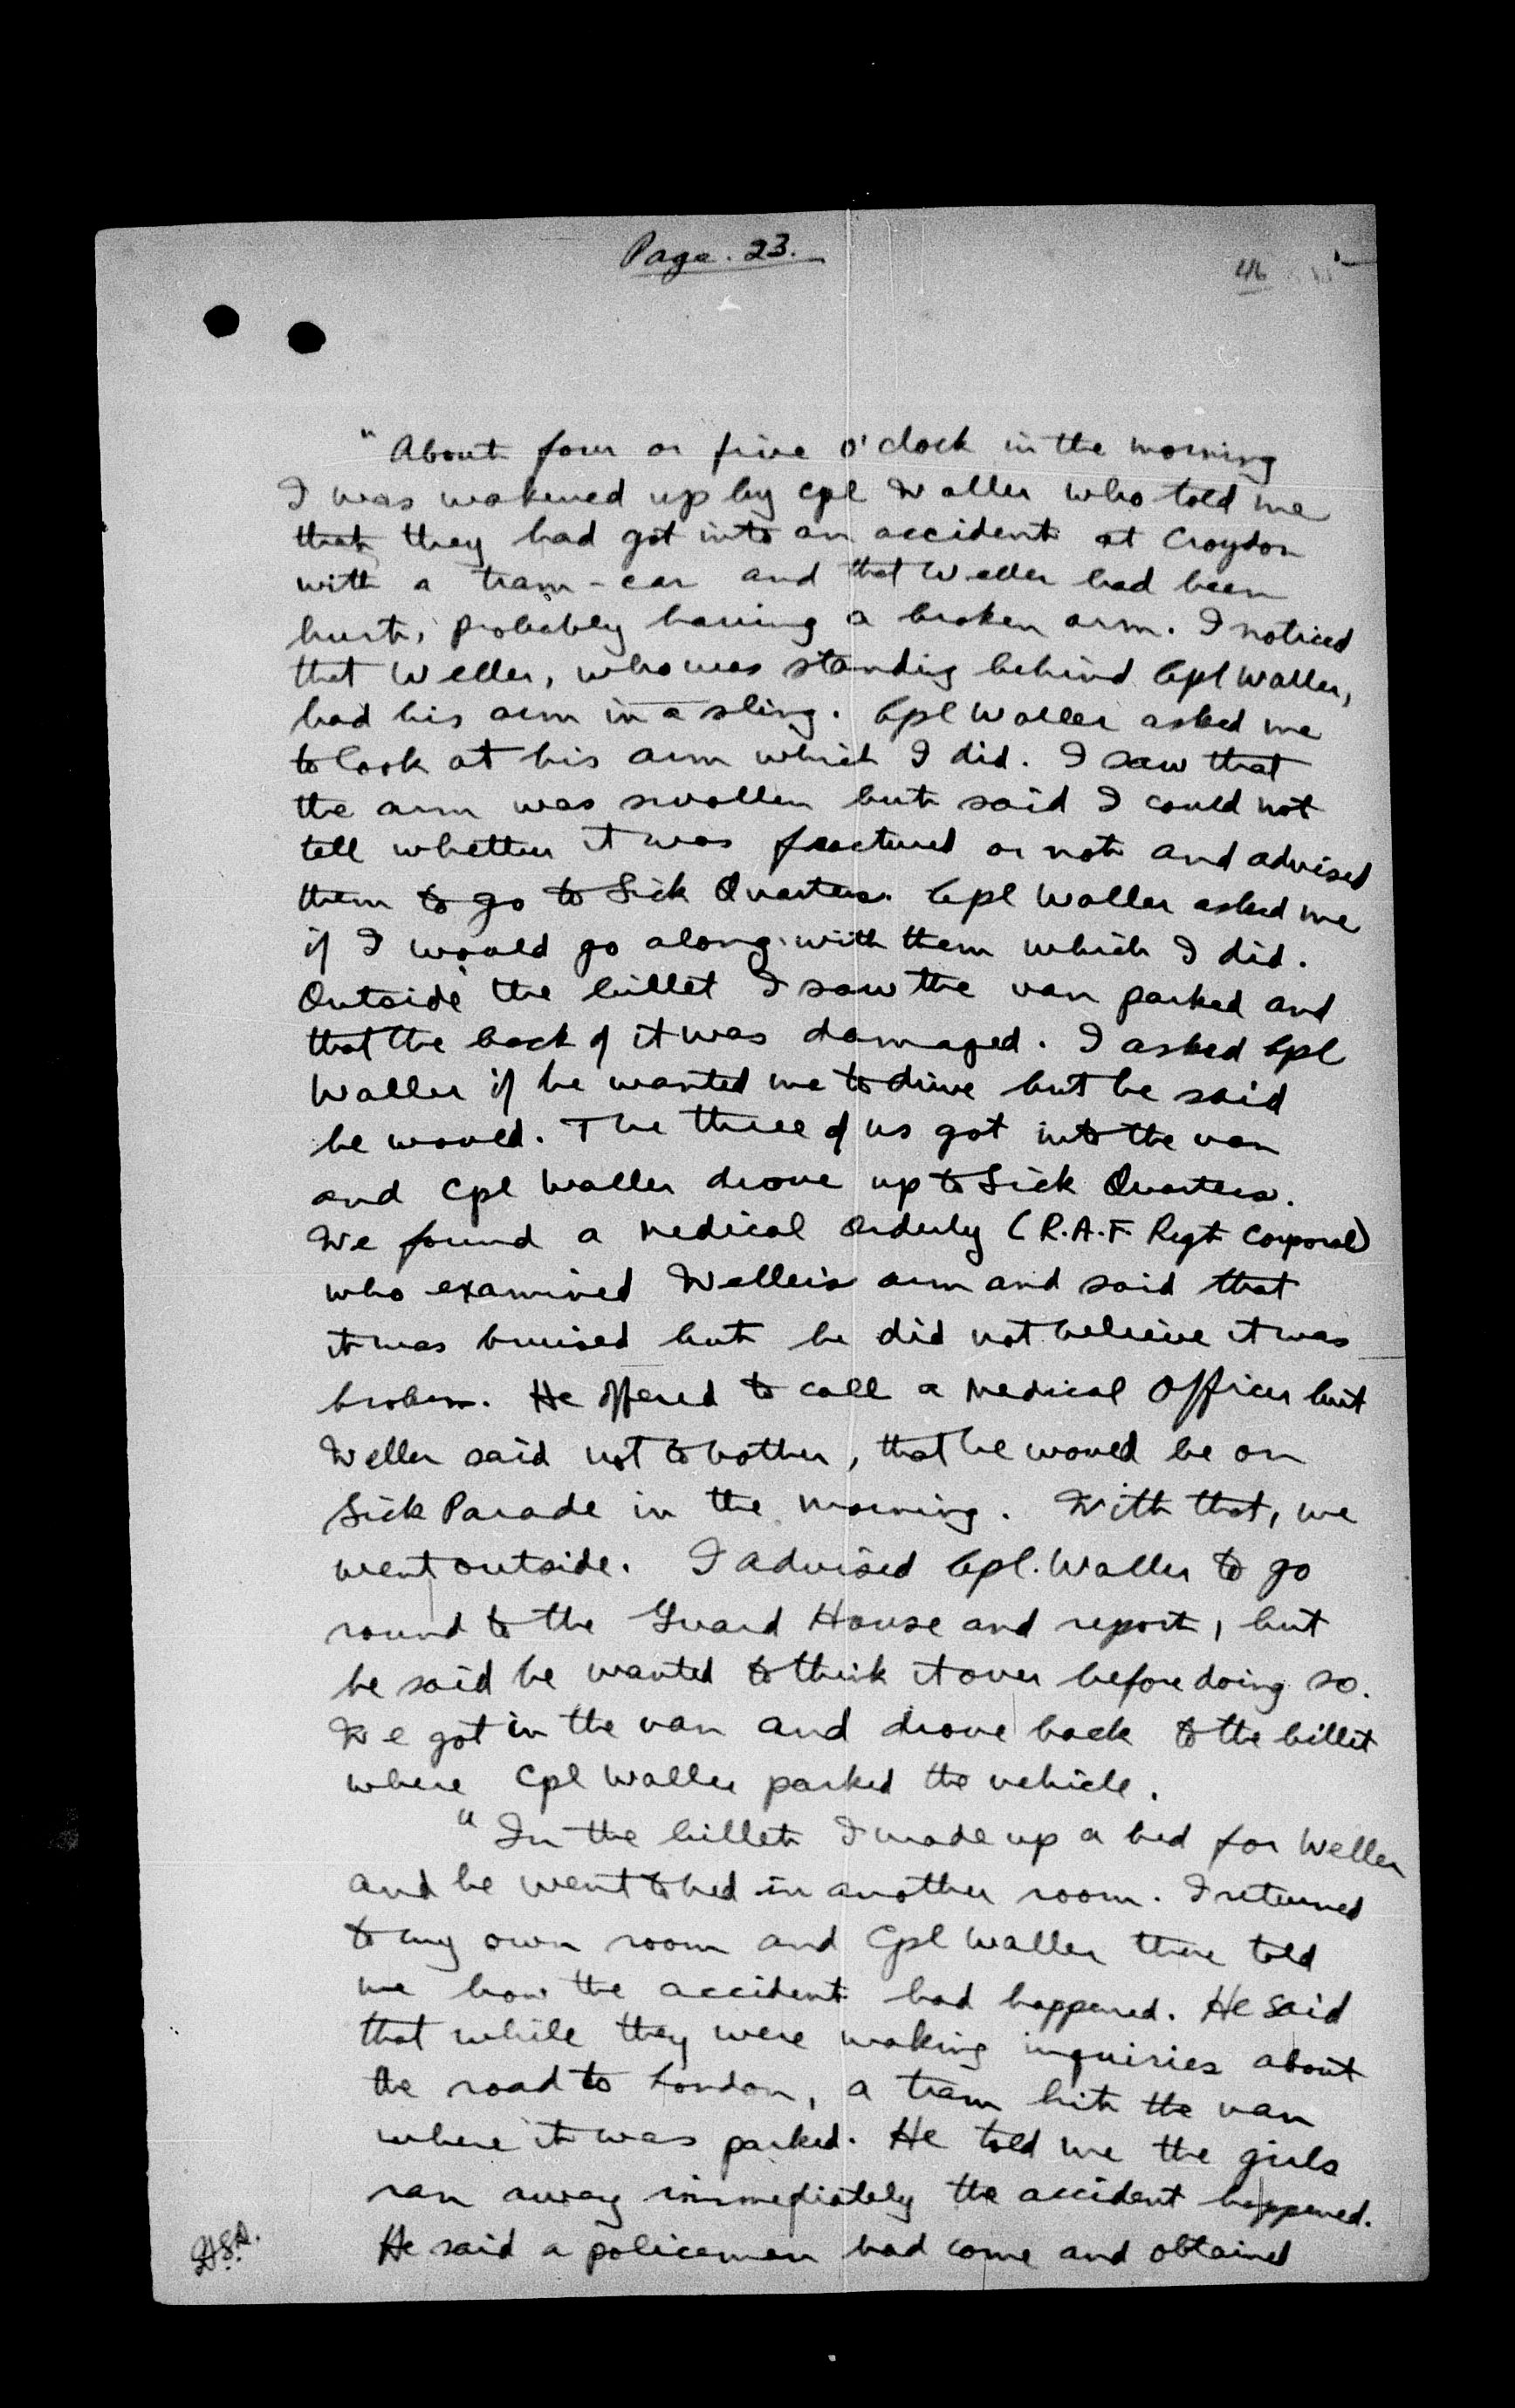 Page. 23.
46
" About four or five o'clock in the morning
I was wakened up by Cpl Waller who told me
that they had got into an accident at Croydon
with a tram-car and that Weller had been
hurt, probably having a broken arm. I noticed
that Weller, who was standing behind Cpl Waller,
had his arm in a sling. Cpl Waller asked me
to look at his arm which I did. I saw that
the arm was swollen but said I could not
tell whether it was fractured or not and advised
them to go to Sick Quarters. Cpl Waller asked me
if I would go along with them which I did.
Outside the billet I saw the van parked and
that the back of it was damaged. I asked Cpl
Waller if he wanted me to drive but he said
he would. The three of us got into the van
and Cpl Waller drove up to Sick Quarters.
We found a Medical Orderly (R.A.F. Regt Corporal)
who examined Weller's arm and said that
it was bruised but he did not believe it was
broken. He offered to call a Medical Officer but
Weller said not to bother, that he would be on
Sick Parade in the morning. With that, we
went outside. I advised Cpl. Waller to go
round to the Guard House and report, but
he said he wanted to think it over before doing so.
We got in the van and drove back to the billet
where Cpl Waller parked the vehicle.
" In the billet I made up a bed for Weller
and he went to bed in another room. I returned
to my own room and Cpl Waller there told
me how the accident had happened. He said
that while they were making inquiries about
the road to London, a tram hit the van
where it was parked. He told me the girls
ran away immediately the accident happened.
He said a policeman had come and obtained